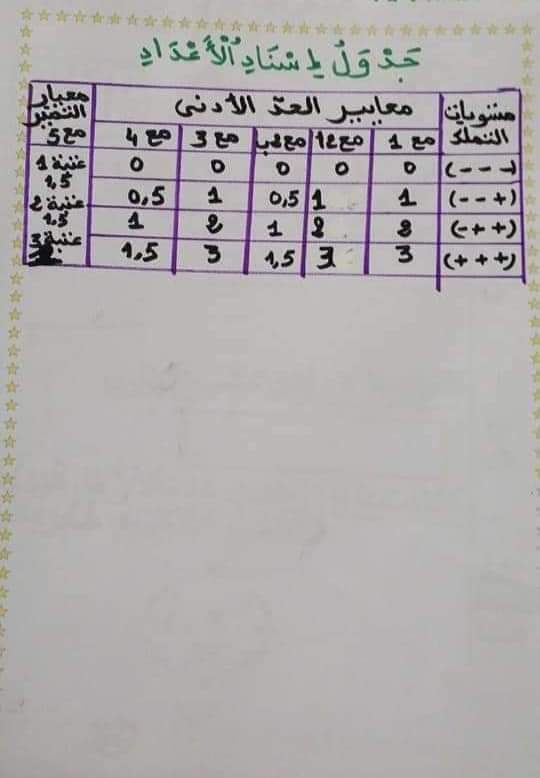 جَدْوَلُ إِسْنَادِ الْأَعْدَادِ
مستويات التملك معايير الحدّ الأدنى معيار التميز
مع 1 مع 2أ مع 2ب مع 3 مع 4 مع 5
(---) 0 0 0 0 0 عتبة 1
1,5
(--+) 1 1 0,5 1 0,5 عتبة 2
(-++) 2 2 1 2 1 1.5
(+++) 3 3 1,5 3 1,5 عتبة 3